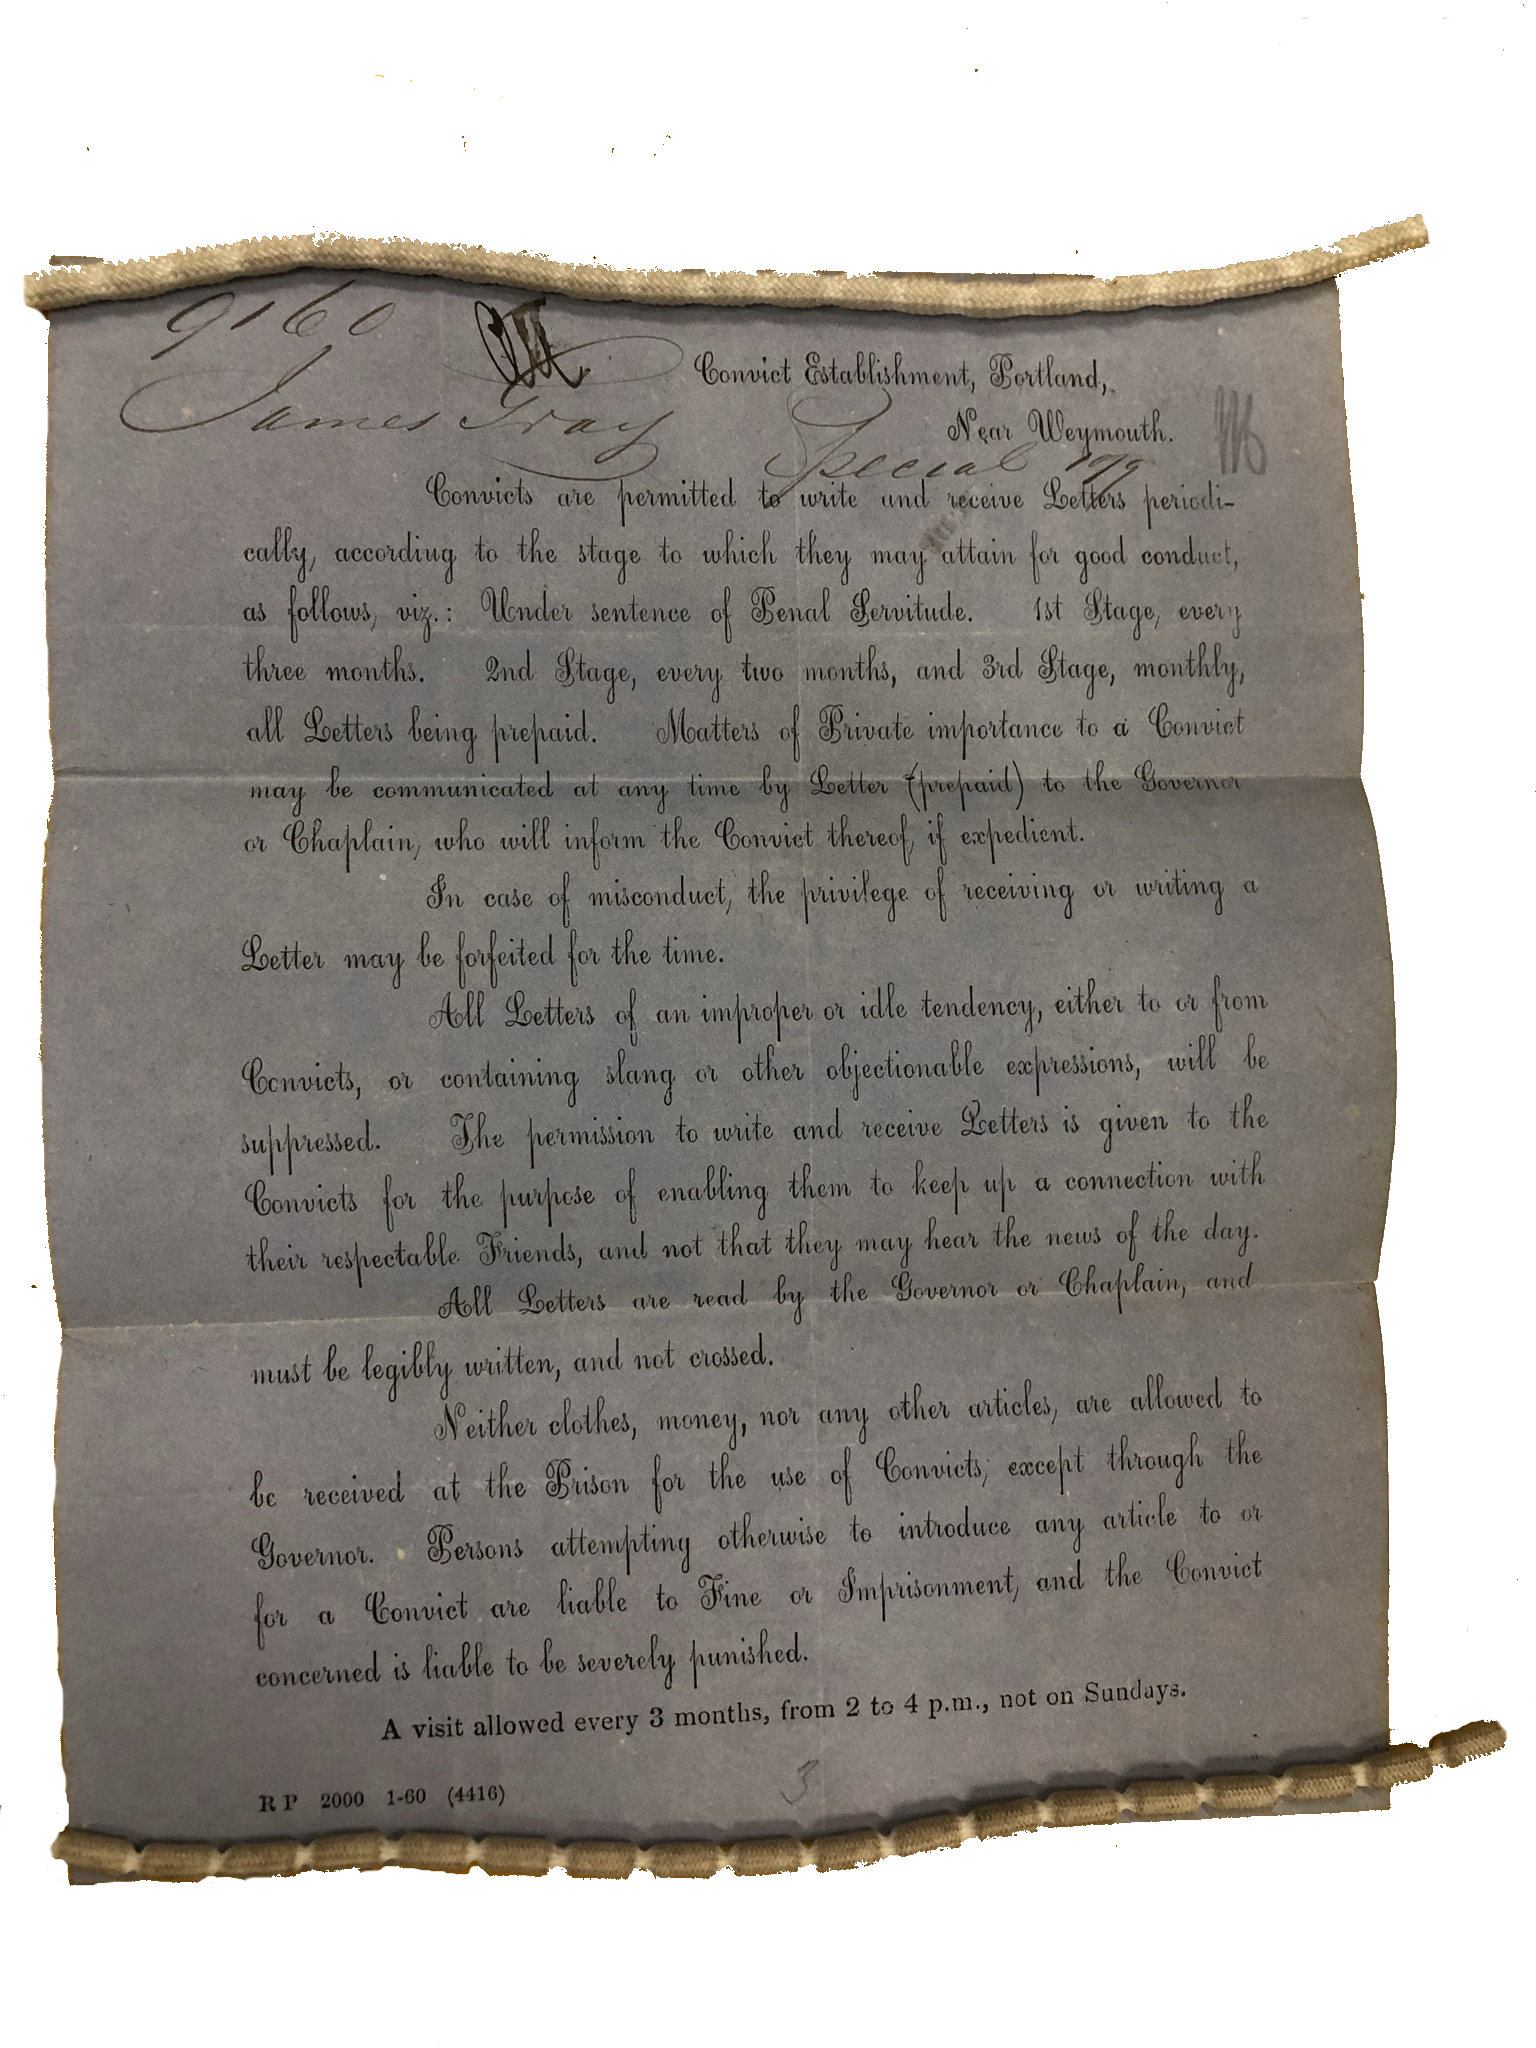 9160
James Gray
Convict Establishment, Portland,
Near Weymouth.
Special
Convicts are permitted to write and receive Letters periodi-
cally, according to the stage to which they may attain for good conduct,
as follows, viz.: Under sentence of Penal Servitude. 1st Stage, every
three months. 2nd Stage, every two months, and 3rd Stage, monthly,
all Letters being prepaid. Matters of Private importance to a Convict
may be communicated at any time by Letter (prepaid) to the Governor
or Chaplain, who will inform the Convict thereof, if expedient.
In case of misconduct, the privilege of receiving or writing a
Letter may be forfeited for the time.
All Letters of an improper or idle tendency, either to or from
Convicts, or containing slang or other objectionable expressions, will be
suppressed. The permission to write and receive Letters is given to the
Convicts for the purpose of enabling them to keep up a connection with
their respectable Friends, and not that they may hear the news of the day.
All Letters are read by the Governor or Chaplain, and
must be legibly written, and not crossed.
Neither clothes, money, nor any other articles, are allowed to
be received at the Prison for the use of Convicts, except through the
Governor. Persons attempting otherwise to introduce any article to or
for a Convict are liable to Fine or Imprisonment, and the Convict
concerned is liable to be severely punished.
A visit allowed every 3 months, from 2 to 4 p.m., not on Sundays.
R P 2000 1-60 (4416)
3